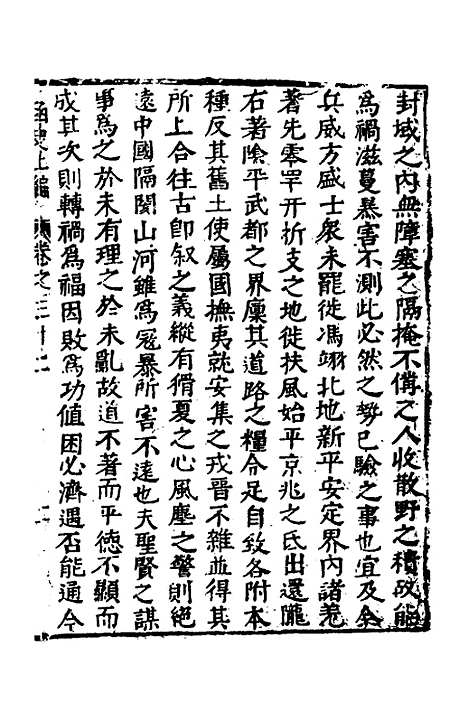 封域之內無障塞之隔掩不備之人收散野之積故能
爲禍滋蔓暴害不測此必然之勢已驗之事也宜及今
兵威方盛士衆未罷徙馮翊北地新平安定界內諸羗
著先零罕开析支之地徙扶風始平京兆之氐出還隴
右著陰平武都之界廩其道路之糧令足自致各附本
種反其舊土使屬國撫夷就安集之戎晉不雜並得其
所上合往古即叙之義縱有猾夏之心風塵之警則絕
遠中國隔閡山河雖爲冦暴所害不遠也夫聖賢之謀
事爲之於未有理之於未亂故道不著而平德不顯而
成其次則轉禍爲福因敗爲功值困必濟遇否能通今
函史上編 卷之三十二